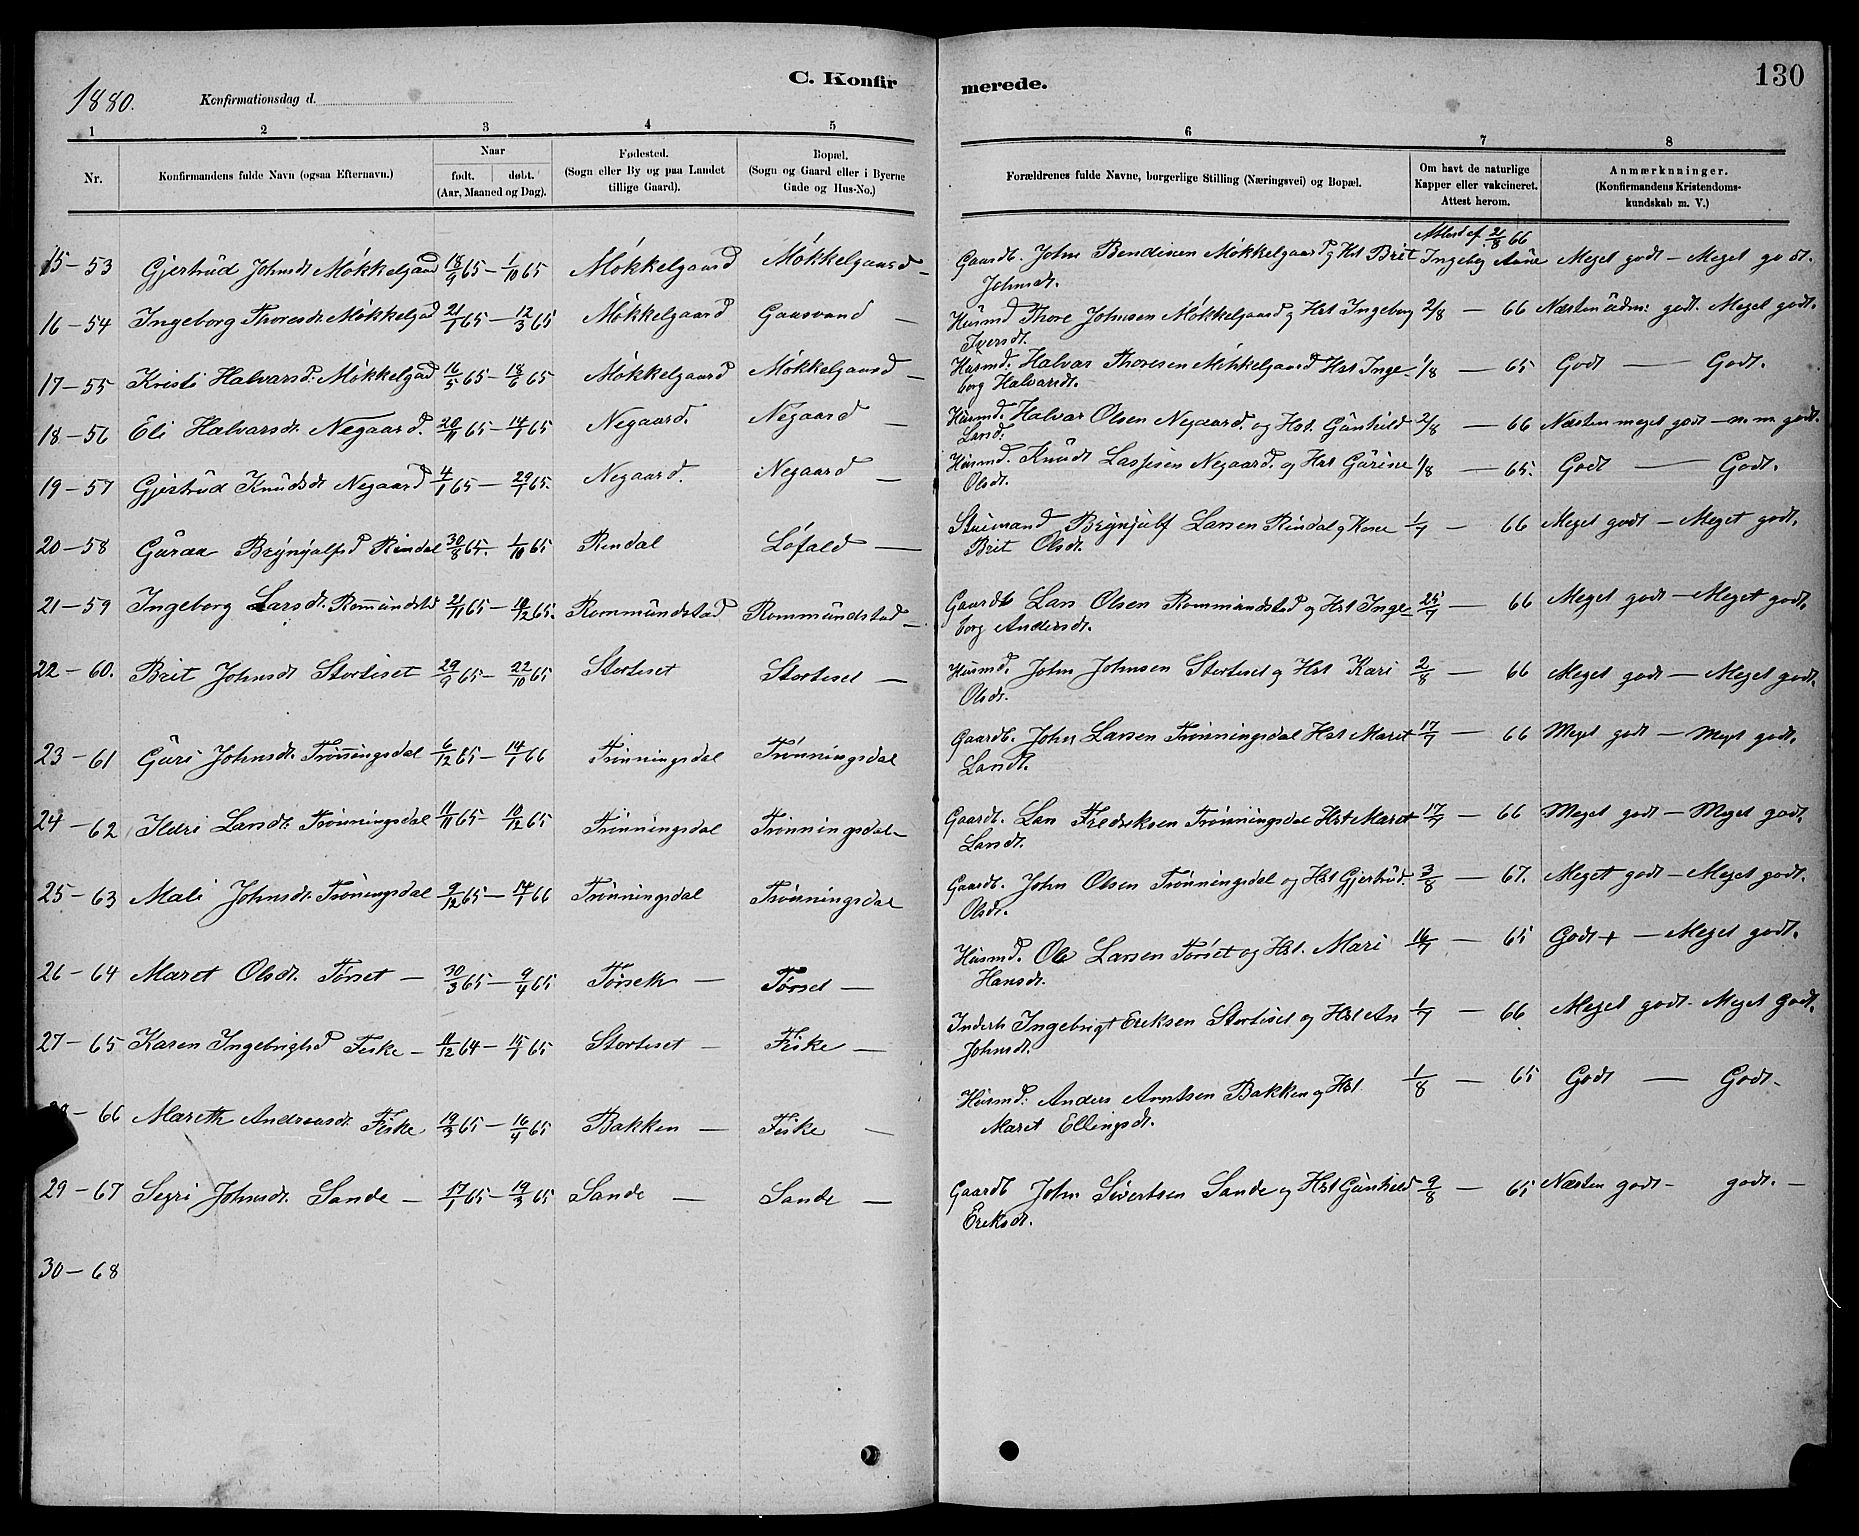 1880.
Konfirmationsdag d.
C. Konfir
merede.
130
1 2 3 4 5 6 7 8
Nr.
Konfirmandens fulde Navn (ogsaa Efternavn.)
Naar
født. døbt.
(Aar, Maaned og Dag).
Fødested.
(Sogn eller By og paa Landet
tillige Gaard).
Bopæl.
(Sogn og Gaard eller i Byerne
Gade og Hus-No.)
Forældrenes fulde Navne, borgerlige Stilling (Næringsvei) og Bopæl.
Om havt de naturlige
Kapper eller vakcineret.
Attest herom.
Anmærknninger.
(Konfirmandens Kristendoms-
kundskab m. V.)
Attest af 2/8 66
15-53 Gjertrud Johnsdt Møkkelgaard 18/9 65 - 1/10 65 Møkkelgaard Møkkelgaard - Gaardb. John Bendixen Møkkelgaard og Hst Brit Ingebg Aune Meget godt - Meget godt.
Johnsdt.
16-54 Ingeborg Thoresdt. Møkkelgd 21/1 65 - 12/3 65 Møkkelgaard Gaasvand - Husmd Thore Johnsen Møkkelgaard og Hst Ingeborg 2/8 - 66 Næsten udm: godt. Meget godt.
Iversdt.
17-55 Kristi Halvarsd. Møkkelgd 16/5 65 - 18/6 65 Møkkelgaard Møkkelgaard - Husmd. Halvar Thoresen Møkkelgaard Hst Inge- 1/8 - 65 Godt - Godt.
borg Halvarsdt.
18-56 Eli Halvarsdt. Negaard. 20/11 65 - 14/1 65 Negaard. Negaard - Husmd. Halvar Olsen Negaard. og Hst. Gunhild 2/8 - 66 Næsten meget godt - n. m. godt.
Larsd.
19-57 Gjertrud Knudsdt Negaard 4/1 65 - 29/1 65. Negaard. Negaard - Husmd. Knudt Lassesen Negaard. og Hst Gurine 1/8 - 65. Godt - Godt.
Olsdt.
20-58 Guraa Brynjulfsd Rindal 30/8 65. - 1/10 65 Rindal Løfald - Stuemand Brynjulf Larsen Rindal og Kone 1/7 - 66 Meget godt - Meget godt.
Brit Olsdt.
21-59 Ingeborg Larsdt. Rommundstd 21/11 65 - 10/12 65. Rommundstad Rommundstad - Gaardb Lars Olsen Rommundstad og Hst Inge- 25/7 - 66 Meget godt - Meget godt.
borg Andersdt.
22-60. Brit Johnsdt Stortiset 29/9 65 - 22/10 65 Stortiset Stortiset - Husmd. John Johnsen Stortiset og Hst Kari 2/8 - 66 Meget godt - Meget godt.
Olsdt.
23-61 Guri Johnsdt. Trønningsdal 6/12 65 - 14/1 66 Trønningsdal Trønningsdal Gaardb. John Larsen Trønningsdal Hst Maret 17/7 - 66 Meget godt - Meget godt.
Larsdt.
24-62 Ildri Larsdt. Trønningsdal 11/11 65 - 10/12 65 Trønningsdal Trønningsdal - Gaardb. Lars Fredriksen Trønningsdal Hst Maret 17/7 - 66 Meget godt - Meget godt.
Larsdt.
25-63 Mali Johnsdt. Trøningsdal 9/12 65 - 14/1 66 Trønningsdal Trønningsdal Gaardb. John Olsen Trønningsdal og Hst Gjertrud. 3/8 - 67. Megett godt - Meget godt.
Olsdt.
26-64 Maret Olsdt. Tørset - 30/3 65 - 9/4 65 Tørseth - Tørset - Husmd. Ole Larsen Tørset og Hst. Mari 16/7 - 65 Godt + - Meget godt.
Hansdt.
27-65 Karen Ingebrigtsd Fiske - 11/12 64 - 15/1 65 Stortiset - Fiske - Inderb Ingebrigt Eriksen Stortiset og Hst An 1/7 - 66 Meget godt - Meget godt.
Johnsdt.
- 66 Mareth Andreasdt. Fiske 19/3 65 - 16/4 65 Bakken - Fiske - Husmd: Anders Arntsen Bakken og Hst. 1/8 - 65 Godt - Godt -
Maret Ellingsdt.
29-67 Segri Johnsdt. Sande - 17/1 65 - 19/3 65 Sande - Sande - Gaardb John Sivertsen Sande og Hst Gunhild 9/8 - 65 Næsten godt - godt. -
Eriksdt.
30-68